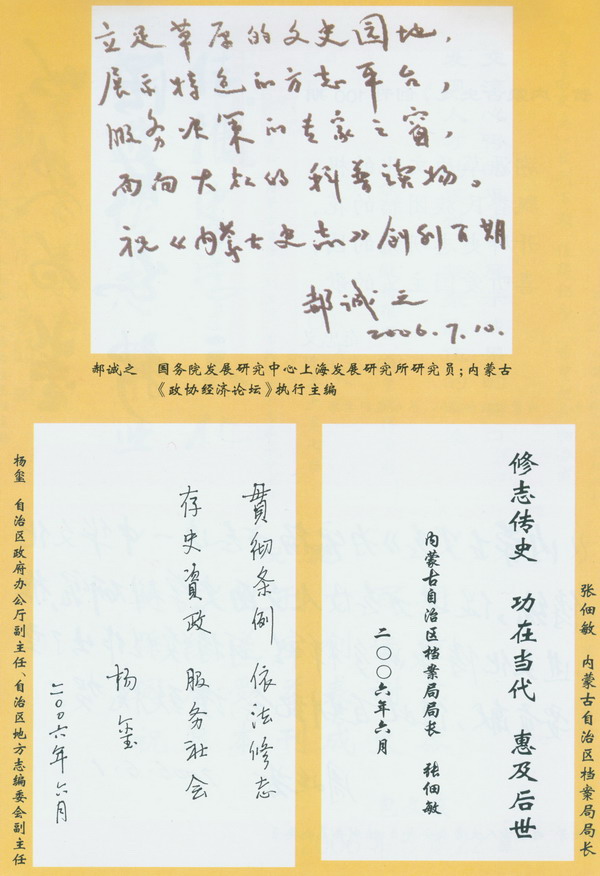 立足草原的文史园地，
展示特色的方志平台，
服务决策的专家之窗，
面向大众的科普读物。
祝《内蒙古史志》创刊百期
郝诚之
2006.7.10.
郝诚之 国务院发展研究中心上海发展研究所研究员；内蒙古
《政协经济论坛》执行主编
杨玺 自治区政府办公厅副主任、自治区地方志编委会副主任
貫彻条例 依法修志
存史資政 服务社会
杨玺
二〇〇六年六月
修志传史 功在当代 惠及后世
内蒙古自治区档案局局长 张佃敏
二〇〇六年六月
张佃敏 内蒙古自治区档案局局长